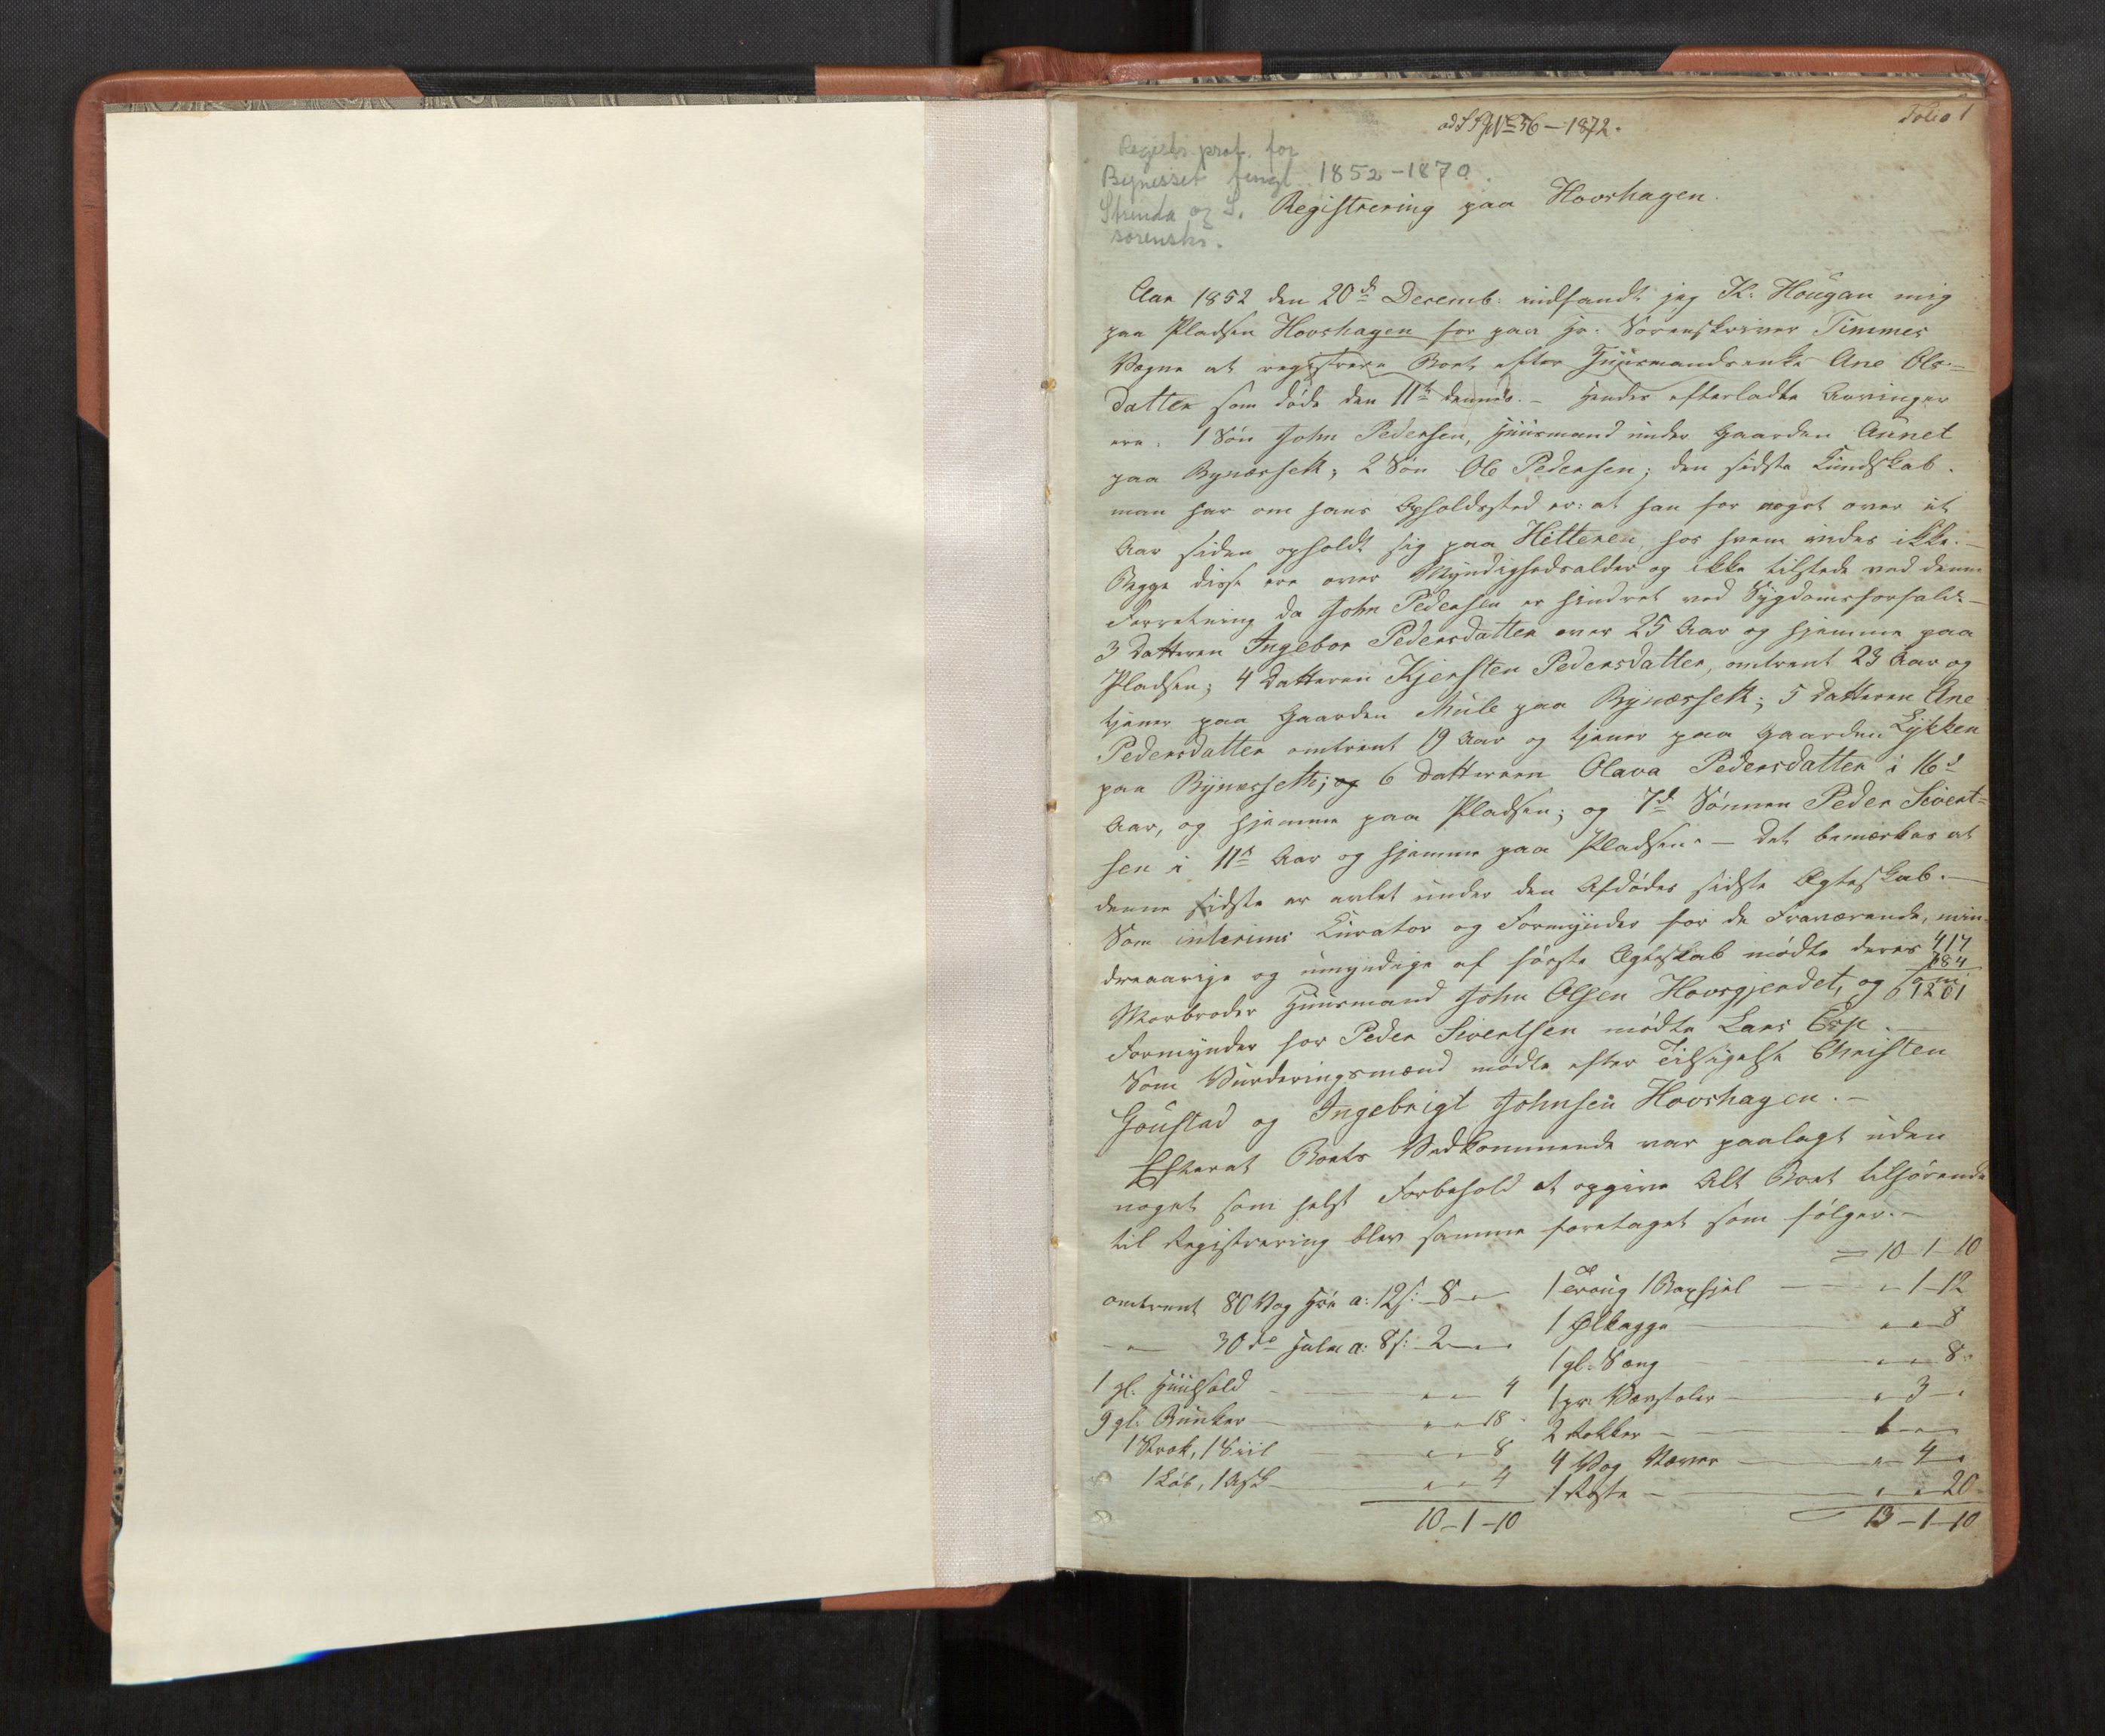 Folio 1
No 36 – 1872.
Registr. prot. for
Bynesset tingl. 1852-1870.
Strinda og S.
sorenskr.
Registrering paa Hovshagen.
Aar 1852 den 20de Decemb: indfandt jeg K: Hougan mig
paa Pladsen Hovshagen for paa Hr. Sorenskriver Timmes
Vegne at registrere Boet efter Huusmandsenke Ane Ols-
datter som døde den 11te dennes. – Hendes efterladte Arvinger
ere: 1 Søn John Pedersen, Huusmand under Gaarden Aunet
paa Bynæsset; 2 Søn Ole Pedersen; den sidste Kundskab
man har om hans Opholdssted er: at han for noget over et
Aar siden opholdt sig paa Hitteren, hos hvem vides ikke. –
Begge disse ere over Myndighedsalder og ikke tilstede ved denne
Forretning da John Pedersen er hindret ved Sygdomsforfald: –
3 Datteren Ingebor Pedersdatter over 25 Aar og hjemme paa
Pladsen; 4 Datteren Kjersten Pedersdatter, omtrent 23 Aar og
tjener paa Gaarden Mule paa Bynæsset; 5 Datteren Ane
Pedersdatter omtrent 19 Aar og tjener paa Gaarden Lykken
paa Bynæsset; og 6 Datteren Olava Pedersdatter i 16de
Aar, og hjemme paa Pladsen; og 7de Sønnen Peder Sivert=
sen i 11te Aar og hjemme paa Pladsen. – Det bemærkes at
denne sidste er avlet under den Afdødes sidste Ægteskab. –
Som interims Curator og Formynder for de Fraværende, min-
dreaarige og umyndige af første Ægteskab mødte deres
Morbroder Huusmand John Olsen Hovsgjerdet, og som
417
784
1201
Formynder for Peder Sivertsen mødte Lars Esp. –
Som Vurderingsmænd mødte efter Tilsigelse Christen
Goustad og Ingebrigt Johnsen Hovshagen. –
Efterat Boets Vedkommende var paalagt uden
noget som helst Forbehold at opgive Alt Boet tilhørende
til Registrering blev samme foretaget som følger. –
omtrent 80 Vog Hø a: 12s: 8 – "
– " – 30 do Halm a: 8s: 2 – "
1 gl. " " 4
9 gl. Bunker " " 18
1 " " 8
1 Løb, 1 Ask " " 4
10 – 1 – 10
= 10 – 1 – 10
1 Troug 1 " 1 – 12
1 Ølkagge " " 8
1 gl: Seng " " 8
1 " 3 – "
2 Rokker 1 – "
4 Vog Næver " 4 – "
1 " " 20
13 – 1 – 10